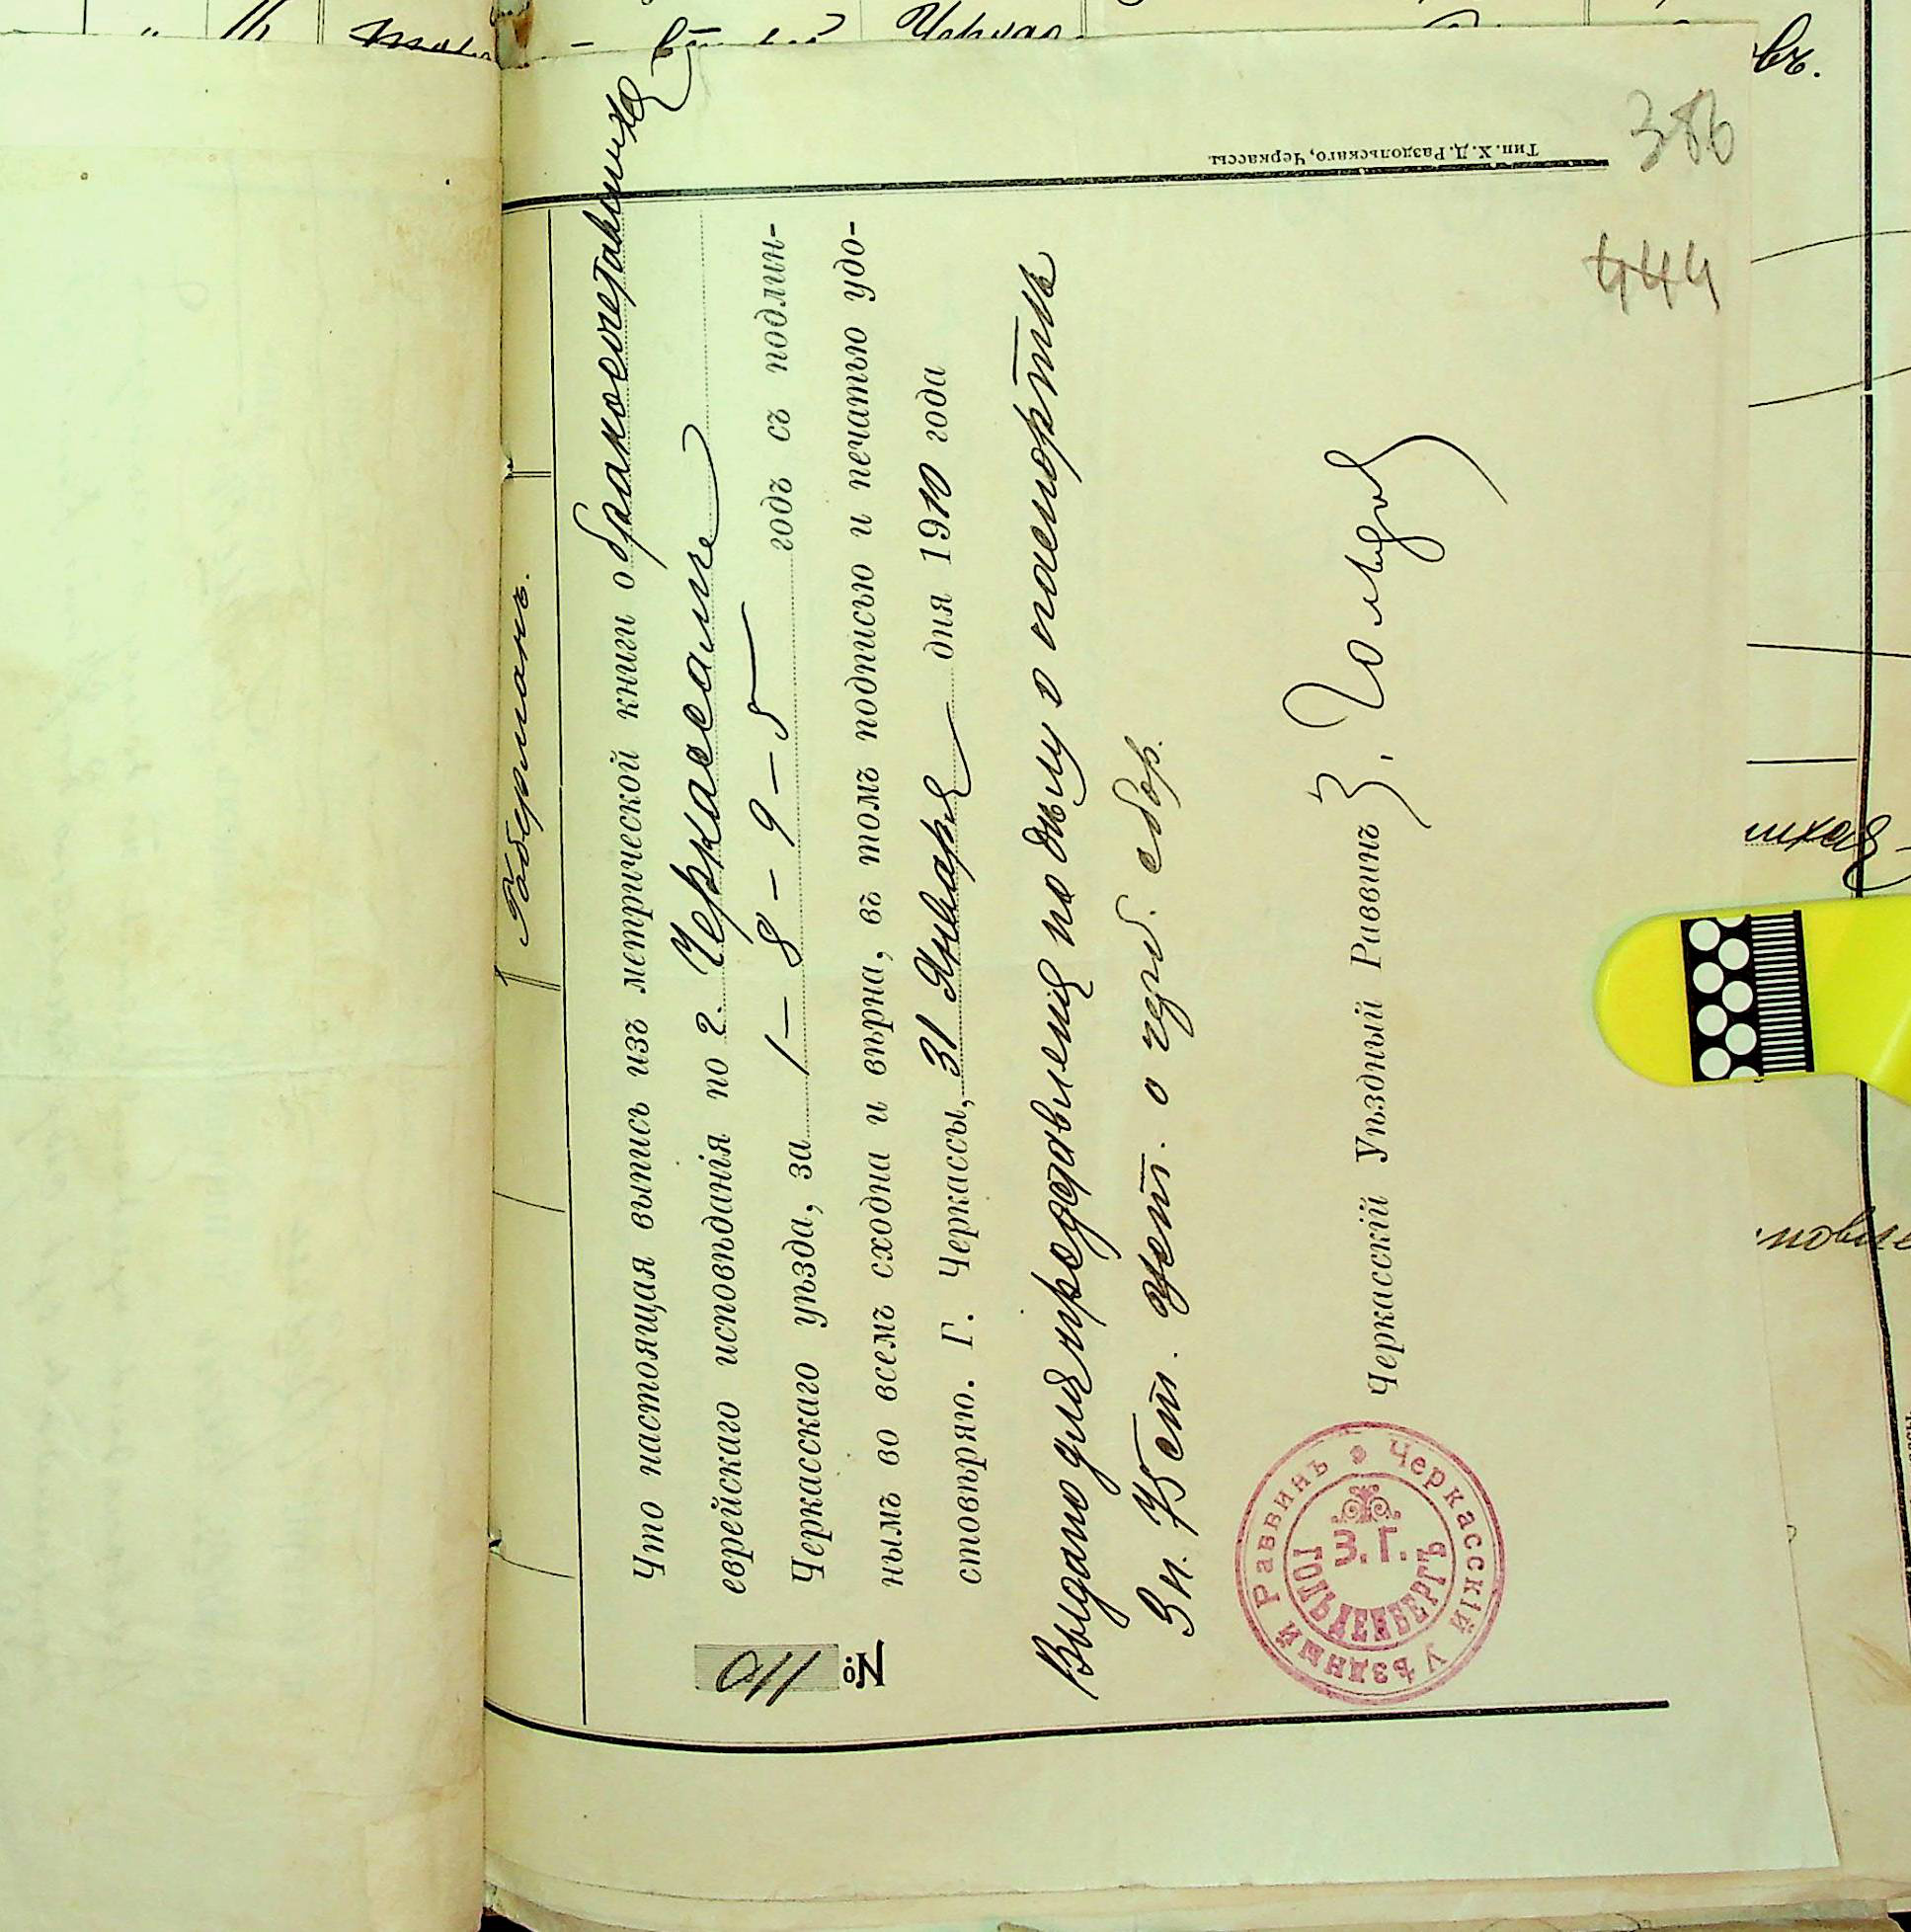 Габерманъ.
Что настоящая выпись изъ метрической книги о бракосочетавшихся
еврейскаго исповѣданія по г. Черкассамъ
Черкасскаго уѣзда, за 1—8—9—5 годъ съ подлин-
нымъ во всемъ сходна и вѣрна, въ томъ подписью и печатью удо-
стовѣряю. Г. Черкассы, 31 Января дня 1910 года
№ 110
Выдано для представленія по дѣлу о паспортѣ
3 п. 75 ст. уст. о герб. сбор.
Черкасскій Уѣздный Раввинъ З. Гольден
Черкасскій Уѣздный Раввинъ
З. Г.
ГОЛЬДЕНБЕРГЪ
Тип. Х. Д. Раздольскаго, Черкассы.
386
444